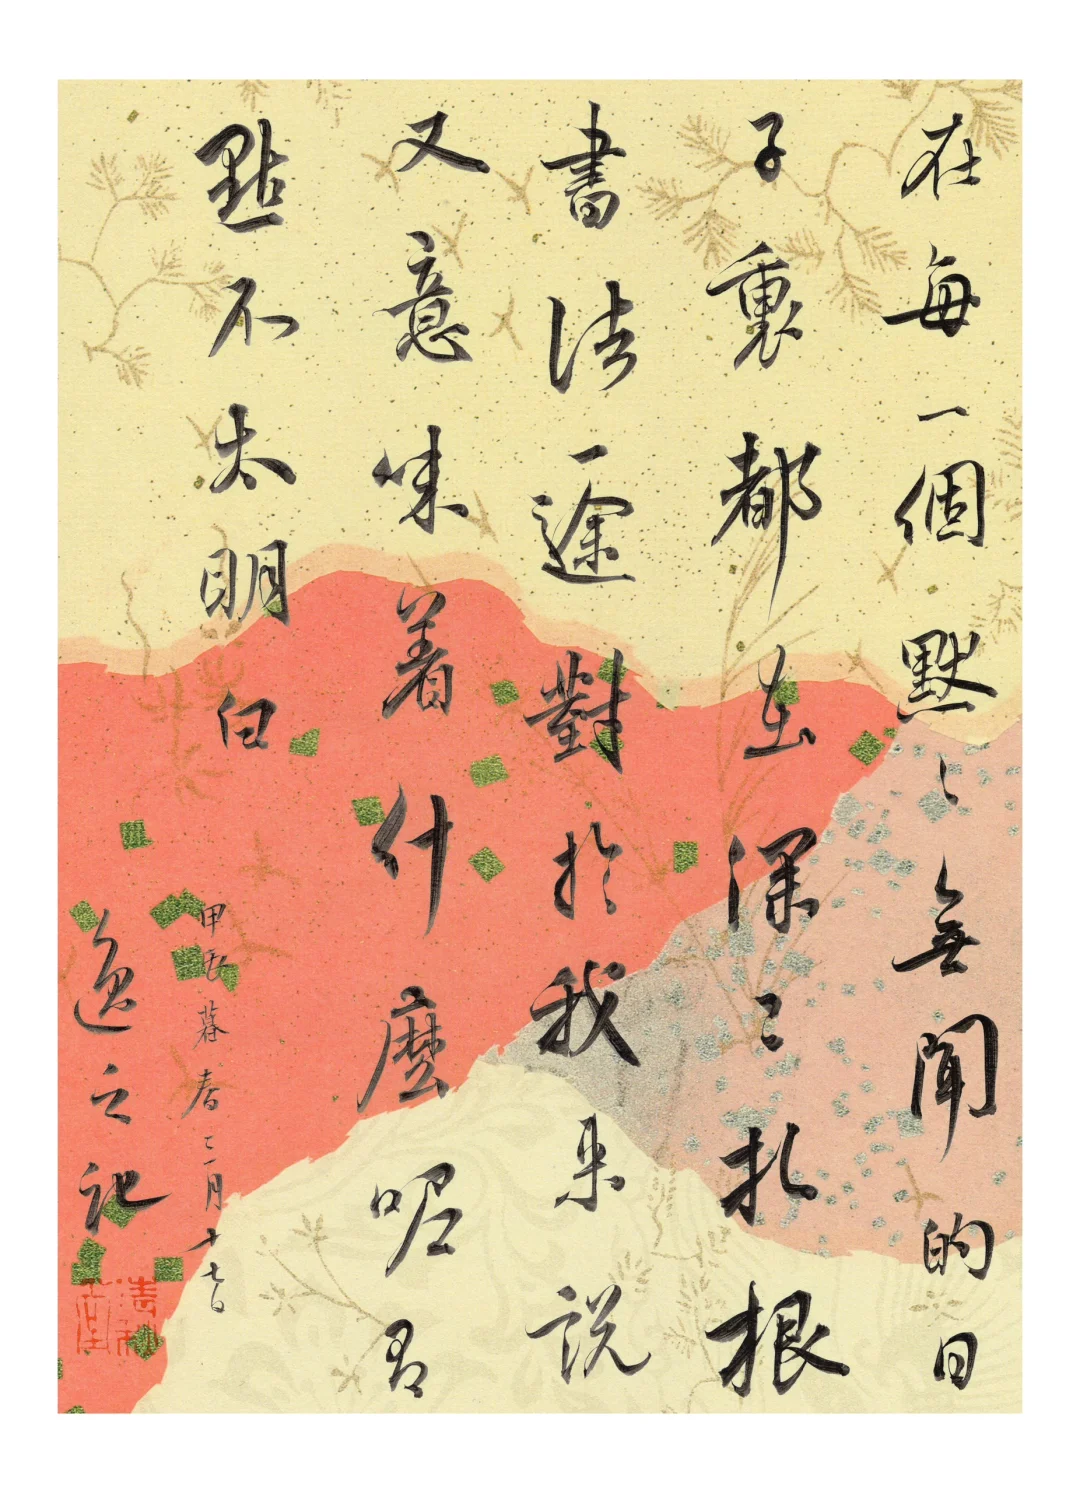 在每一個默〻無聞的日
子裏都在深〻扎根
書法一途對於我来說
又意味着什麼呢有
點不太明白
甲辰暮春三月十七日
逸之記